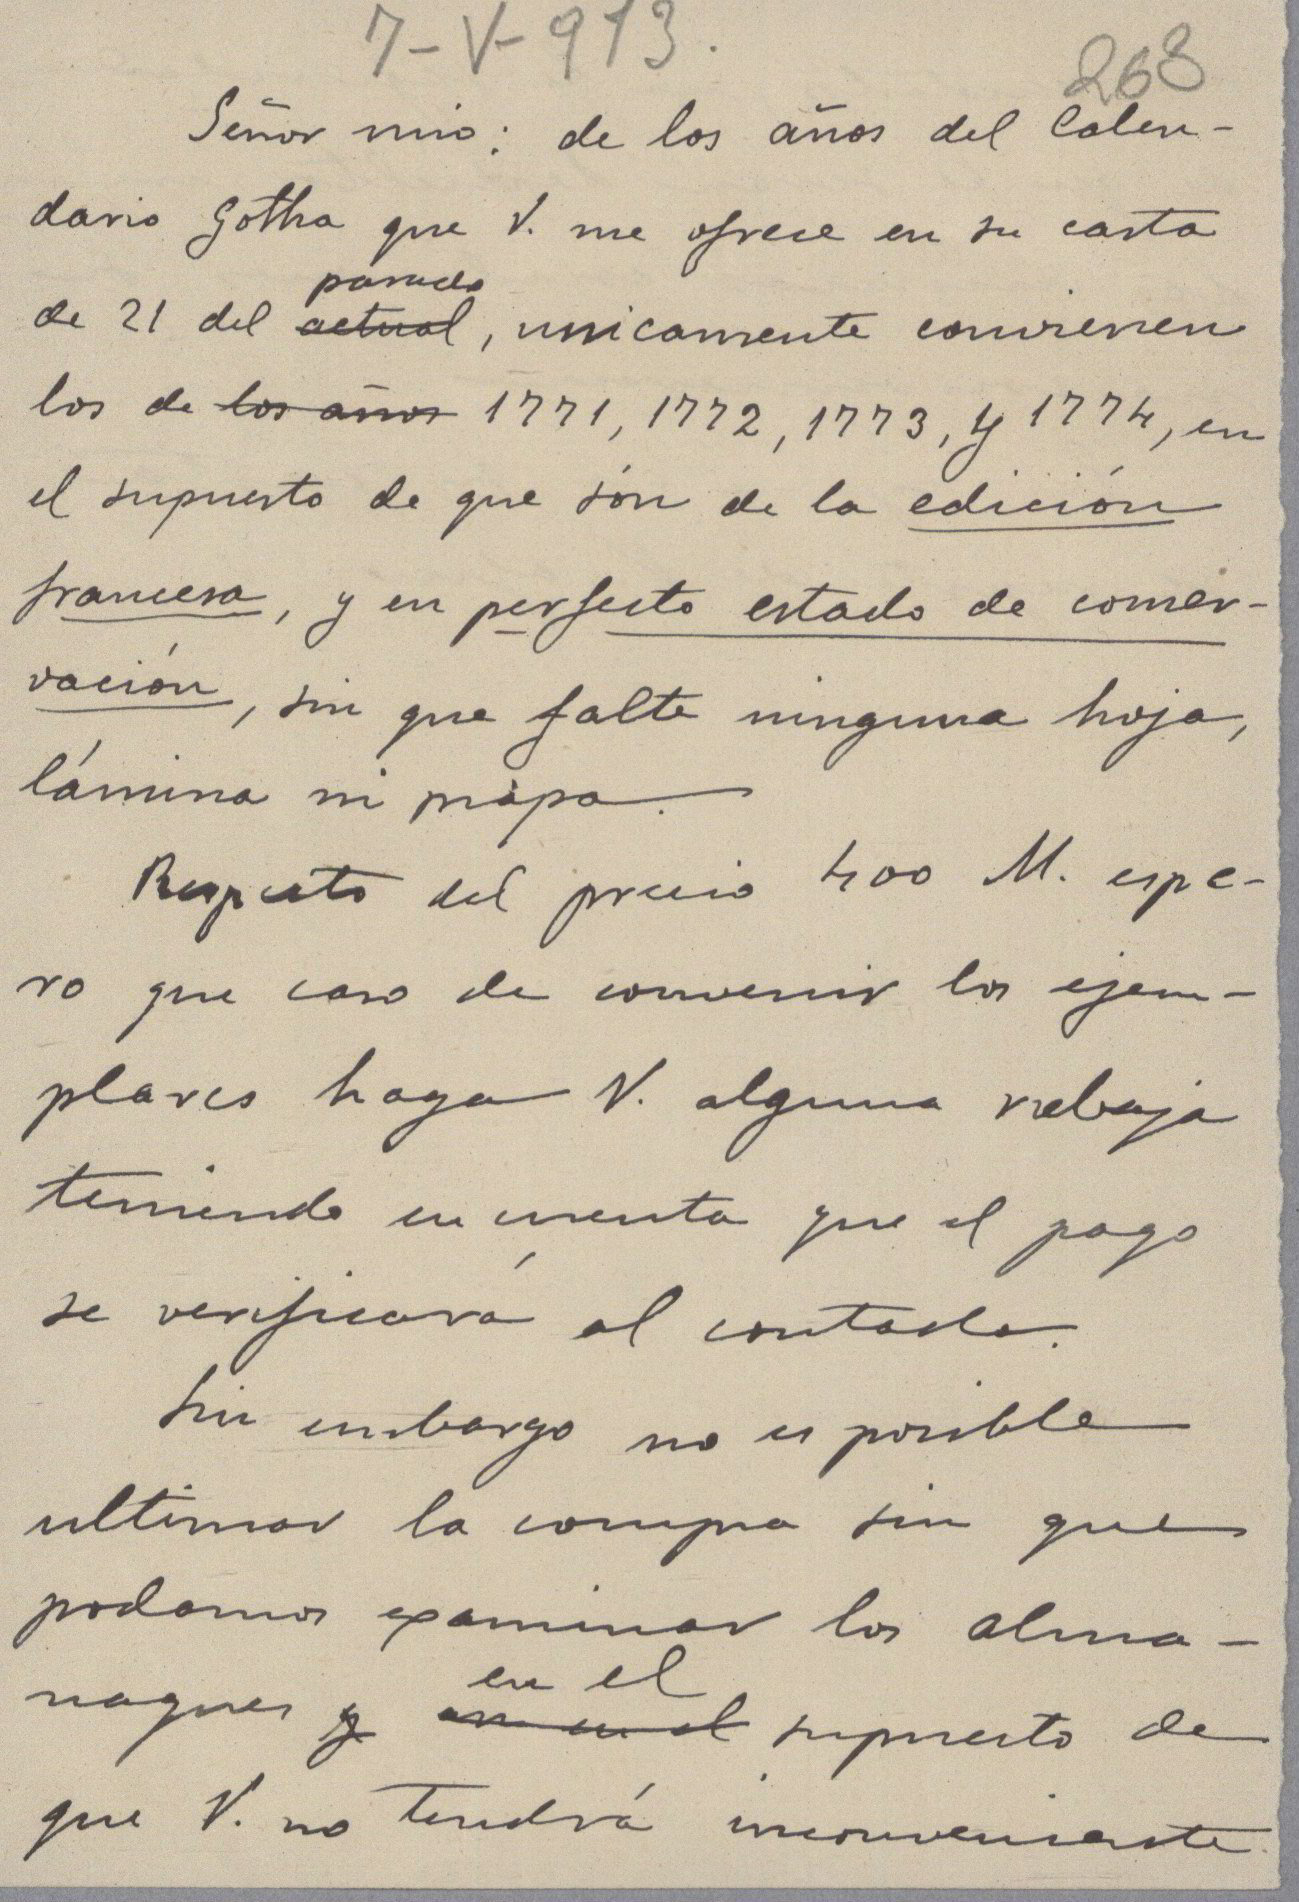 7-V-913.
268
Señor mio: de los años del Calen-
dario Gotha que V. me ofrece en su carta
pasado
de 21 del actual, unicamente convienen
los de los años 1771, 1772, 1773, y 1774, en
el supuesto de que són de la edición
francesa, y en perfecto estado de conser-
vación, sin que falte ninguna hoja,
lámina ni mapa.
Respecto del precio 400 M. espe-
ro que caso de convenir los ejem-
plares haga V. alguna rebaja
teniendo en cuenta que el pago
se verificará al contado.
Sin embargo no es posible
ultimar la compra sin que
podamos examinar los alma-
en el
naques y supuesto de
que V. no tendrá inconveniente